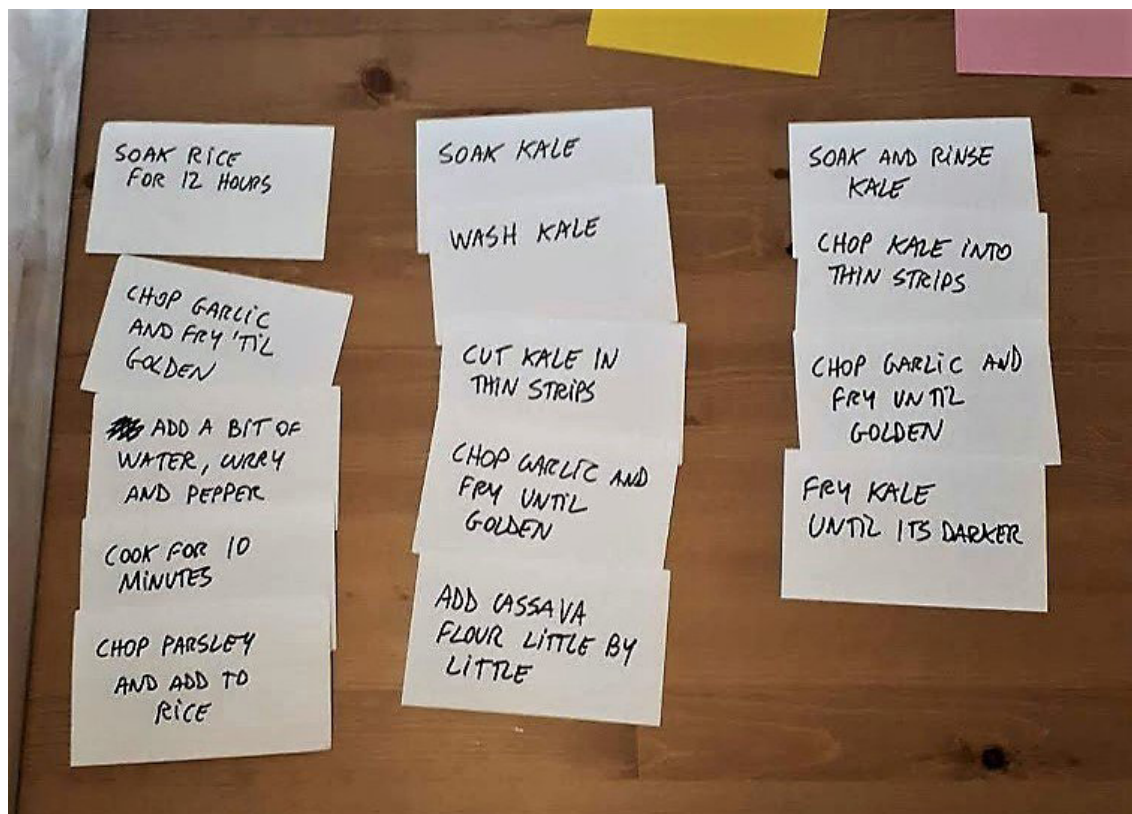 SOAK RICE
FOR 12 HOURS
CHOP GARLIC
AND FRY 'TIL
GOLDEN
ADD A BIT OF
WATER, CURRY
AND PEPPER
COOK FOR 10
MINUTES
CHOP PARSLEY
AND ADD TO
RICE
SOAK KALE
WASH KALE
CUT KALE IN
THIN STRIPS
CHOP GARLIC AND
FRY UNTIL
GOLDEN
ADD CASSAVA
FLOUR LITTLE BY
LITTLE
SOAK AND RINSE
KALE
CHOP KALE INTO
THIN STRIPS
CHOP GARLIC AND
FRY UNTIL
GOLDEN
FRY KALE
UNTIL ITS DARKER